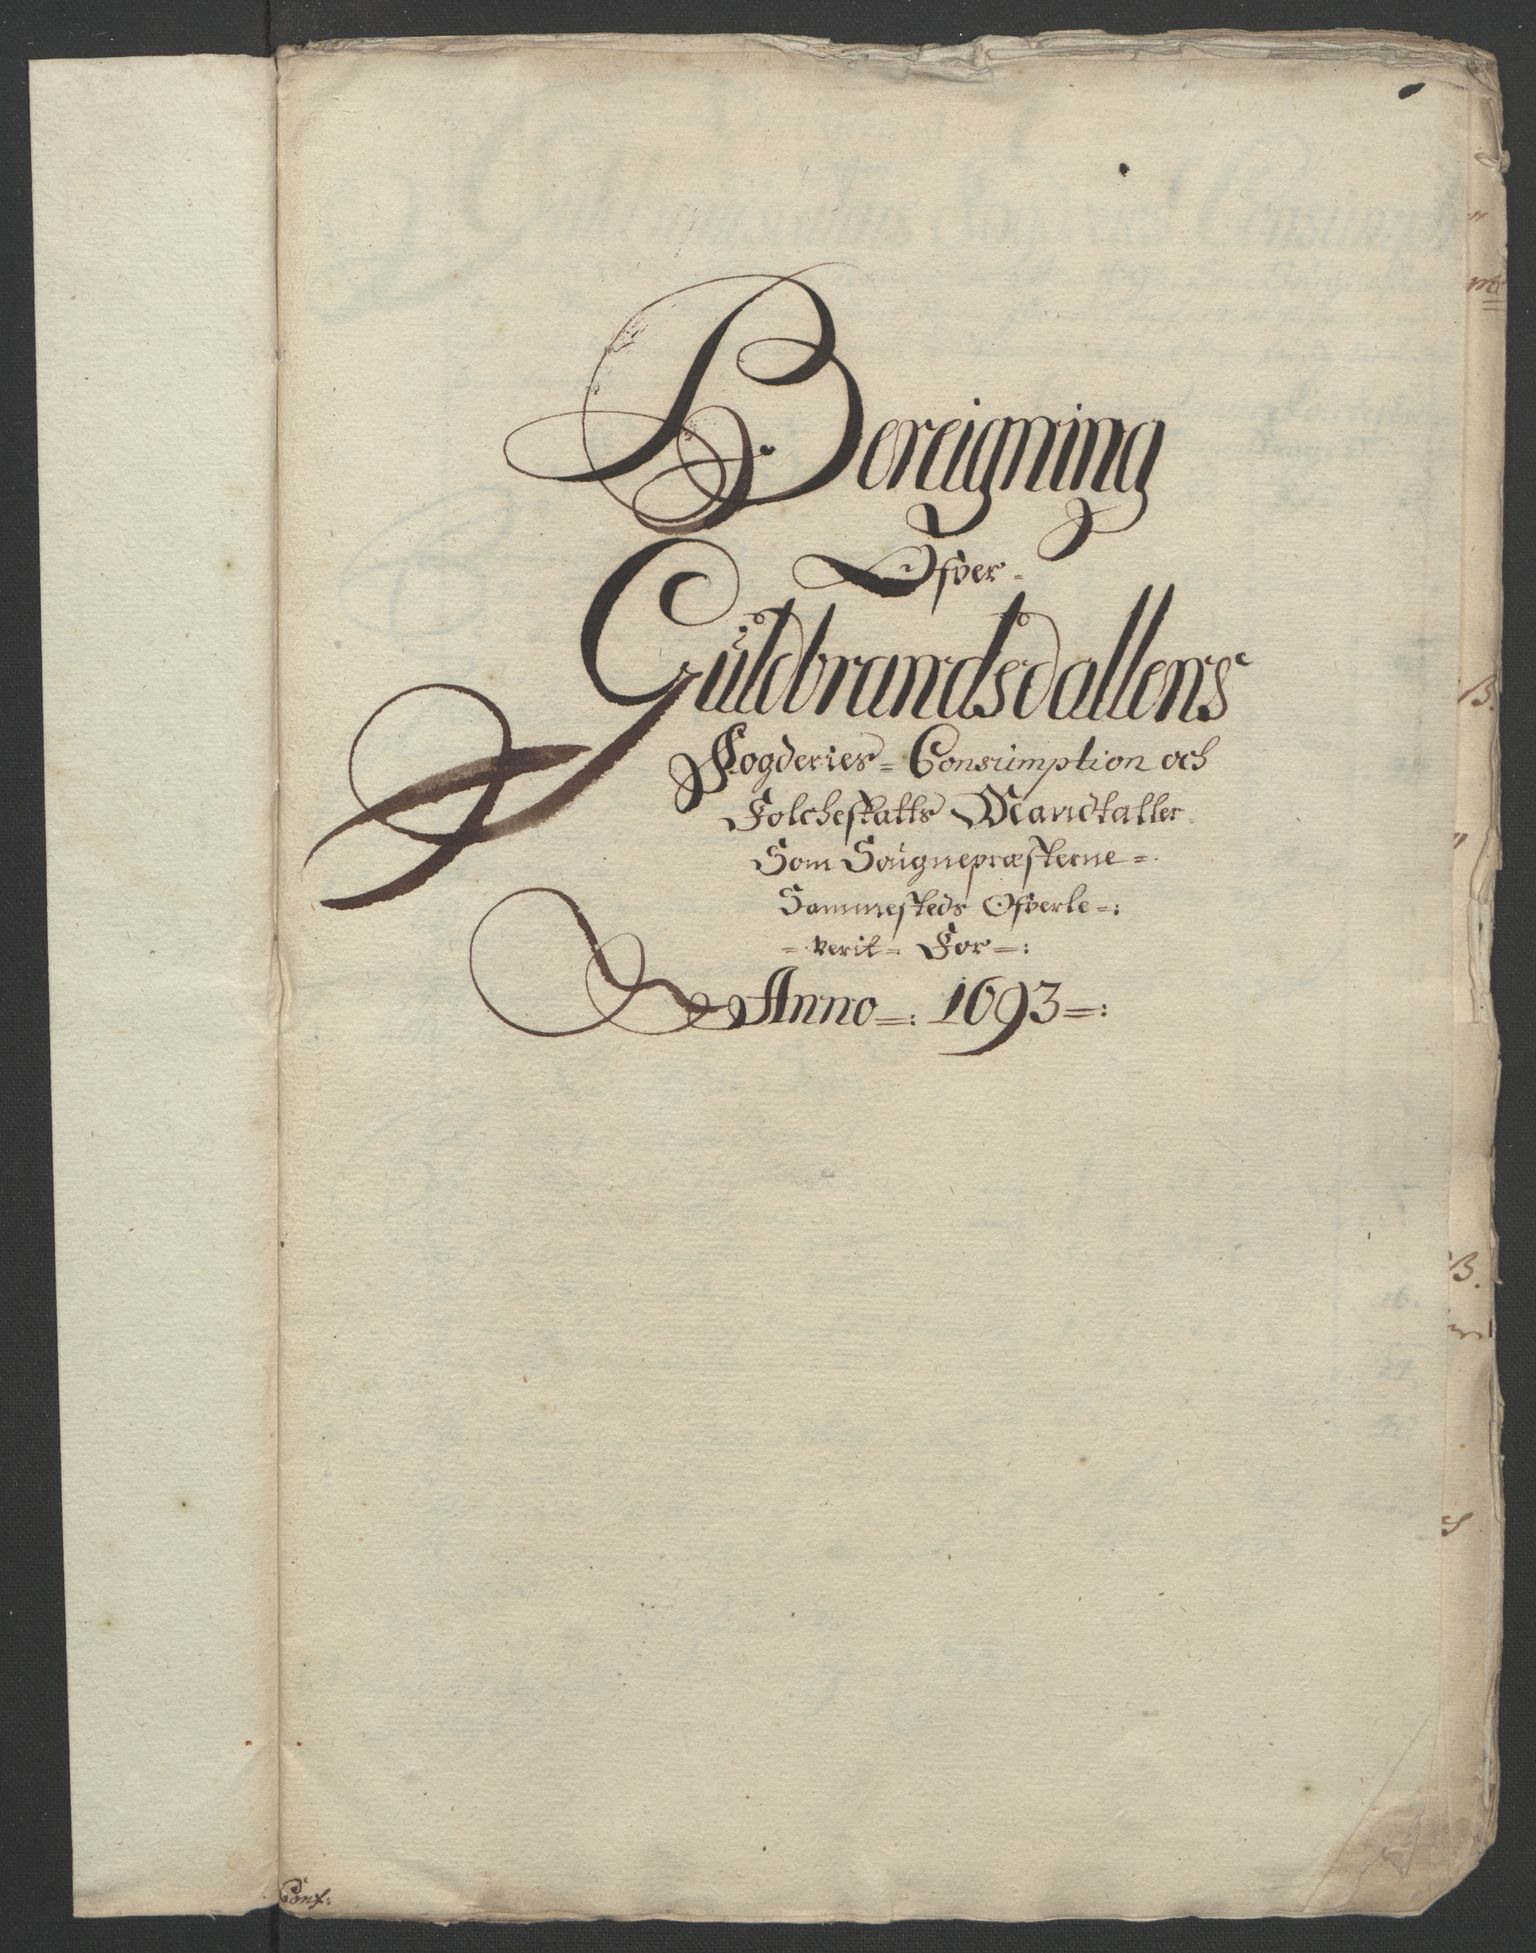 Bereigning
Ofver-
Guldbrandsdallens
Fogderies= Consumption och
Folcheskatts Mandtaller
Som Sougnepræsterne=
Sammesteds Ofverle=:
=verit= For=:
Anno=: 1693=:
B.
B.